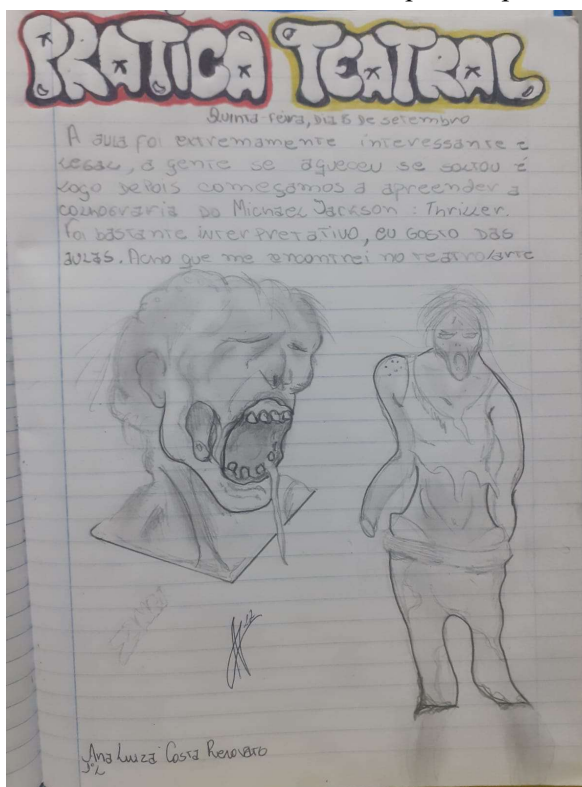 PRATICA TEATRAL
Quinta-feira, dia 15 de setembro
A aula foi extremamente interessante e
legal, a gente se aqueceu se soltou é
logo depois começamos a apreender a
do Michael Jackson : Thriller.
Foi bastante interpretativo, eu gosto das
aulas. Acho que me encontrei no teatro/arte
Ana Luiza Costa Renovato